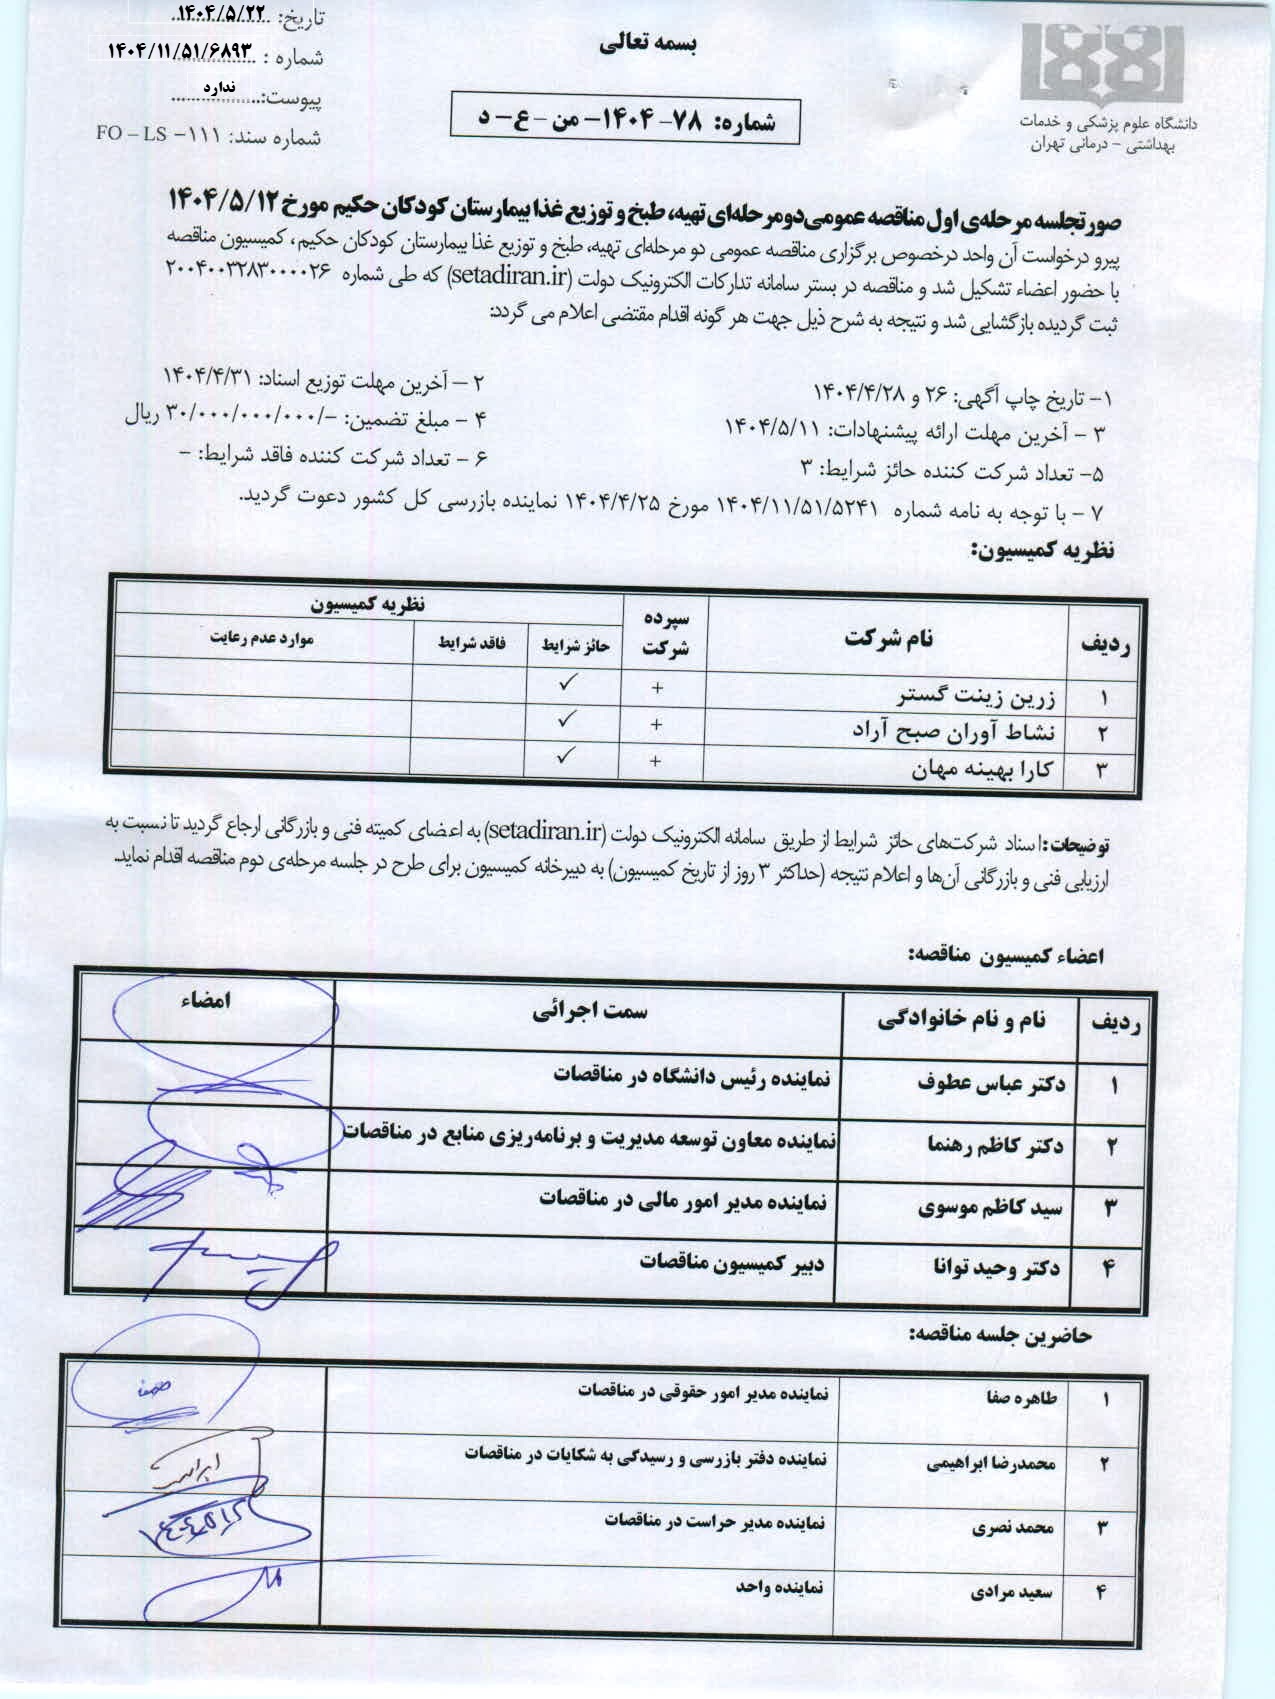 تاریخ: ۱۴۰۴/۵/۲۲
شماره : ۱۴۰۴/۱۱/۵۱/۶۸۹۳
پیوست: ندارد
شماره سند: FO – LS –۱۱۱
بسمه تعالی
شماره: ۷۸- ۱۴۰۴- من - ع- د
دانشگاه علوم پزشکی و خدمات
بهداشتی - درمانی تهران
صورتجلسه مرحله‌ی اول مناقصه عمومی دو مرحله‌ای تهیه، طبخ و توزیع غذا بیمارستان کودکان حکیم مورخ ۱۴۰۴/۵/۱۲
پیرو درخواست آن واحد درخصوص برگزاری مناقصه عمومی دو مرحله‌ای تهیه، طبخ و توزیع غذا بیمارستان کودکان حکیم، کمیسیون مناقصه
با حضور اعضاء تشکیل شد و مناقصه در بستر سامانه تدارکات الکترونیک دولت (setadiran.ir) که طی شماره ۲۰۰۴۰۰۳۲۸۳۰۰۰۰۲۶
ثبت گردیده بازگشایی شد و نتیجه به شرح ذیل جهت هر گونه اقدام مقتضی اعلام می گردد:
۱- تاریخ چاپ آگهی: ۲۶ و ۱۴۰۴/۴/۲۸
۲ – آخرین مهلت توزیع اسناد: ۱۴۰۴/۴/۳۱
۳ - آخرین مهلت ارائه پیشنهادات: ۱۴۰۴/۵/۱۱
۴ - مبلغ تضمین: -/۳۰/۰۰۰/۰۰۰/۰۰۰ ریال
۵- تعداد شرکت کننده حائز شرایط: ۳
۶ - تعداد شرکت کننده فاقد شرایط: -
۷ - با توجه به نامه شماره ۱۴۰۴/۱۱/۵۱/۵۲۴۱ مورخ ۱۴۰۴/۴/۲۵ نماینده بازرسی کل کشور دعوت گردید.
نظریه کمیسیون:
ردیف نام شرکت سپرده شرکت نظریه کمیسیون
حائز شرایط فاقد شرایط موارد عدم رعایت
۱ زرین زینت گستر + ✓
۲ نشاط آوران صبح آراد + ✓
۳ کارا بهینه مهان + ✓
توضیحات: اسناد شرکت‌های حائز شرایط از طریق سامانه الکترونیک دولت (setadiran.ir) به اعضای کمیته فنی و بازرگانی ارجاع گردید تا نسبت به
ارزیابی فنی و بازرگانی آن‌ها و اعلام نتیجه (حداکثر ۳ روز از تاریخ کمیسیون) به دبیرخانه کمیسیون برای طرح در جلسه مرحله‌ی دوم مناقصه اقدام نماید.
اعضاء کمیسیون مناقصه:
ردیف نام و نام خانوادگی سمت اجرائی امضاء
۱ دکتر عباس عطوف نماینده رئیس دانشگاه در مناقصات
۲ دکتر کاظم رهنما نماینده معاون توسعه مدیریت و برنامه‌ریزی منابع در مناقصات
۳ سید کاظم موسوی نماینده مدیر امور مالی در مناقصات
۴ دکتر وحید توانا دبیر کمیسیون مناقصات
حاضرین جلسه مناقصه:
۱ طاهره صفا نماینده مدیر امور حقوقی در مناقصات
۲ محمدرضا ابراهیمی نماینده دفتر بازرسی و رسیدگی به شکایات در مناقصات
۳ محمد نصری نماینده مدیر حراست در مناقصات
۴ سعید مرادی نماینده واحد